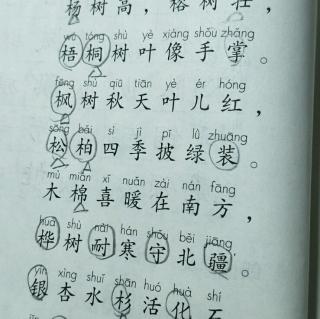 杨树高，榕树壮，
wú tóng shù yè xiàng shǒu zhǎng
梧桐树叶像手掌。
fēng shù qiū tiān yè ér hóng
枫树秋天叶儿红，
sōng bǎi sì jì pī lǜ zhuāng
松柏四季披绿装。
mù mián xǐ nuǎn zài nán fāng
木棉喜暖在南方，
huà shù nài hán shǒu běi jiāng
桦树耐寒守北疆。
yín xìng shuǐ shān huó huà shí
银杏水杉活化石